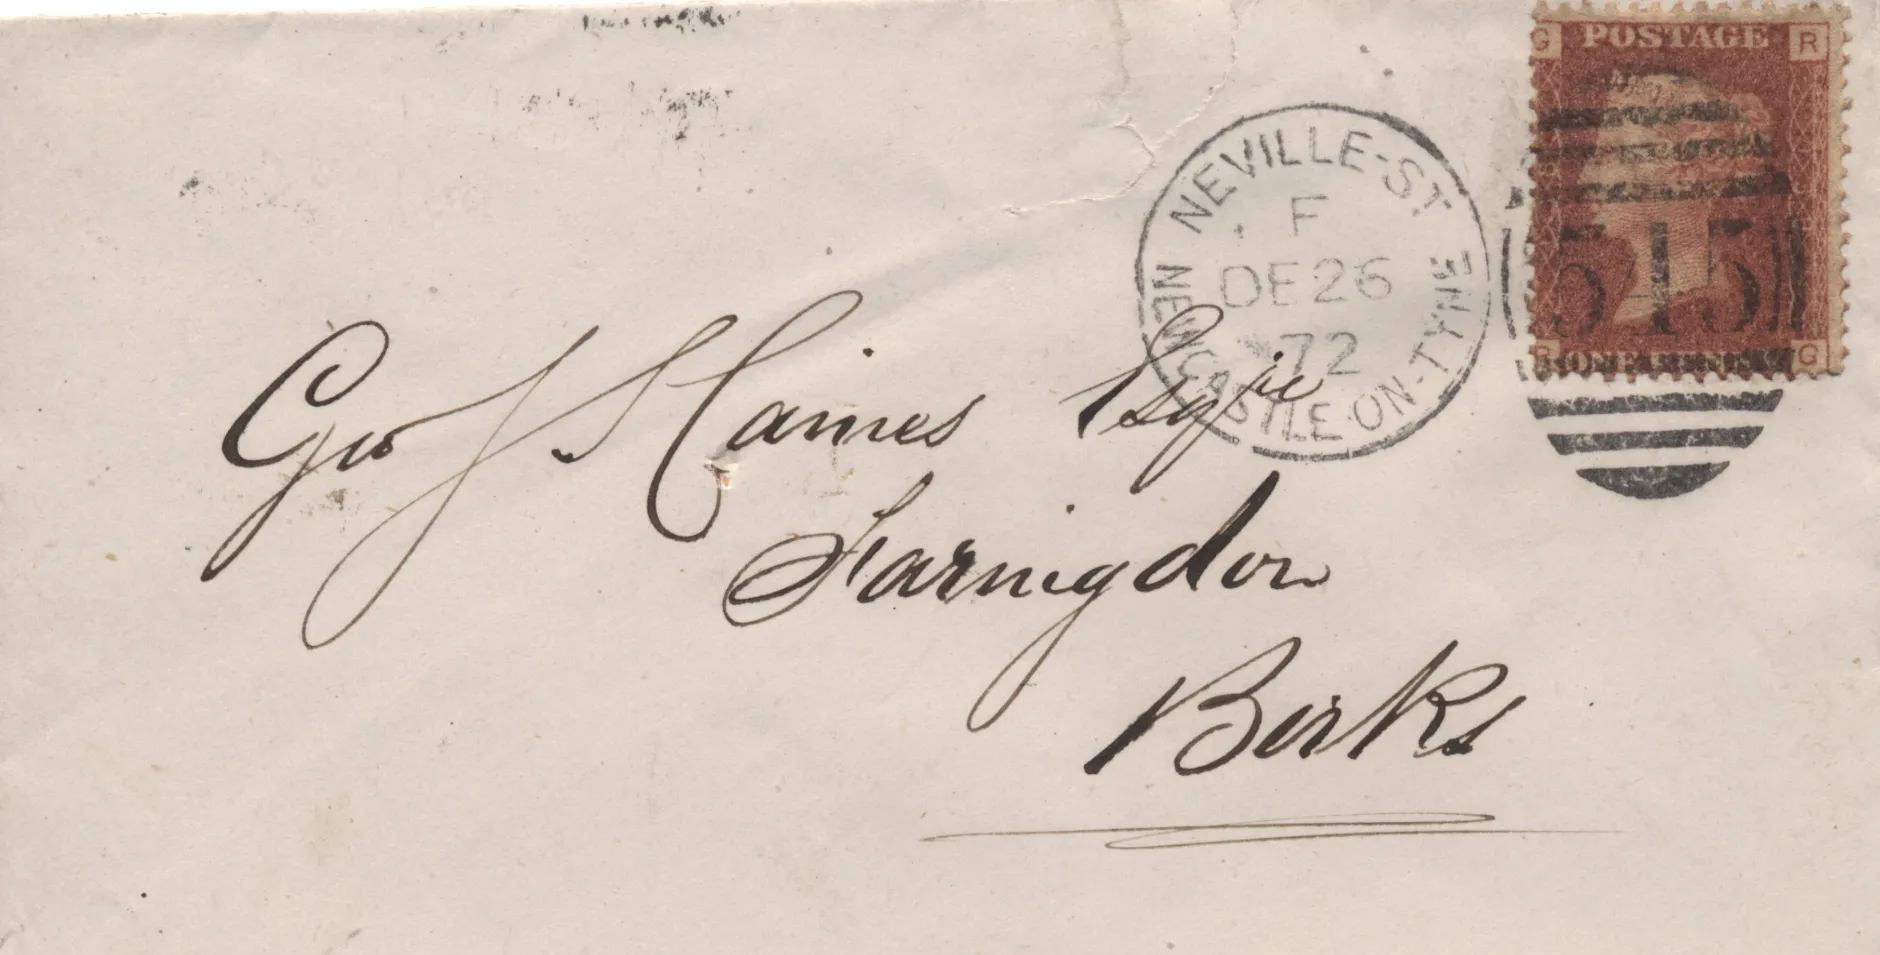 G POSTAGE R
NEVILLE-ST.
F
DE 26
72
NEWCASTLE-ON-TYNE
545
R ONE PENNY G
Geo J Haines Esqre
Farnigdon
Berks